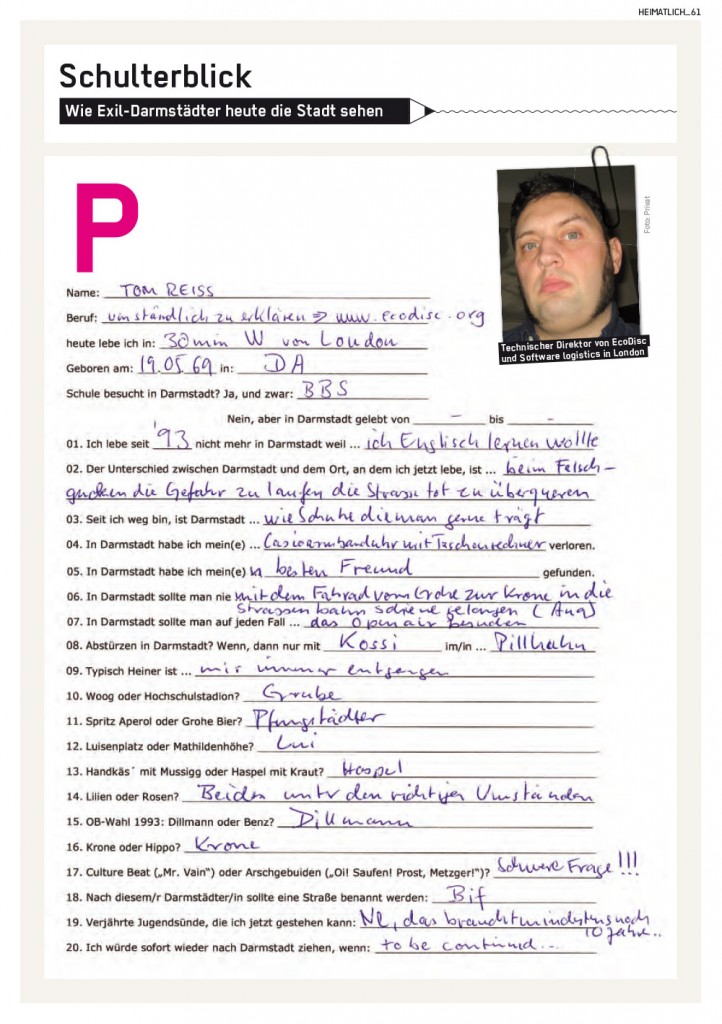 HEIMATLICH_61
Schulterblick
Wie Exil-Darmstädter heute die Stadt sehen
P
Foto: Privat
Technischer Direktor von EcoDisc
und Software logistics in London
Name: TOM REISS
Beruf: umständlich zu erklären => www.ecodisc.org
heute lebe ich in: 30min W von London
Geboren am: 19.05.69 in: DA
Schule besucht in Darmstadt? Ja, und zwar: BBS
Nein, aber in Darmstadt gelebt von – bis –
01. Ich lebe seit '93 nicht mehr in Darmstadt weil ... ich Englisch lernen wollte
02. Der Unterschied zwischen Darmstadt und dem Ort, an dem ich jetzt lebe, ist ... beim Falsch-
gucken die Gefahr zu laufen die Strasse tot zu überqueren
03. Seit ich weg bin, ist Darmstadt ... wie Schuhe die man gerne trägt
04. In Darmstadt habe ich mein(e) ... Casioarmbanduhr mit Taschenrechner verloren.
05. In Darmstadt habe ich mein(e)n besten Freund gefunden.
06. In Darmstadt sollte man nie mit dem Fahrad vom Grohe zur Krone in die
Strassenbahn schiene gelangen (Aua)
07. In Darmstadt sollte man auf jeden Fall ... das Open air besuchen
08. Abstürzen in Darmstadt? Wenn, dann nur mit Kossi im/in ... Pillhahn
09. Typisch Heiner ist ... mir immer entgangen
10. Woog oder Hochschulstadion? Grube
11. Spritz Aperol oder Grohe Bier? Pfungstädter
12. Luisenplatz oder Mathildenhöhe? Lui
13. Handkäs´ mit Mussigg oder Haspel mit Kraut? Haspel
14. Lilien oder Rosen? Beides unter den richtigen Umständen
15. OB-Wahl 1993: Dillmann oder Benz? Dillmann
16. Krone oder Hippo? Krone
17. Culture Beat („Mr. Vain“) oder Arschgebuiden („Oi! Saufen! Prost, Metzger!“)? Schwere Frage!!!
18. Nach diesem/r Darmstädter/in sollte eine Straße benannt werden: Bif
19. Verjährte Jugendsünde, die ich jetzt gestehen kann: Ne, das braucht mindestens noch
10 Jahre..
20. Ich würde sofort wieder nach Darmstadt ziehen, wenn: to be continued...